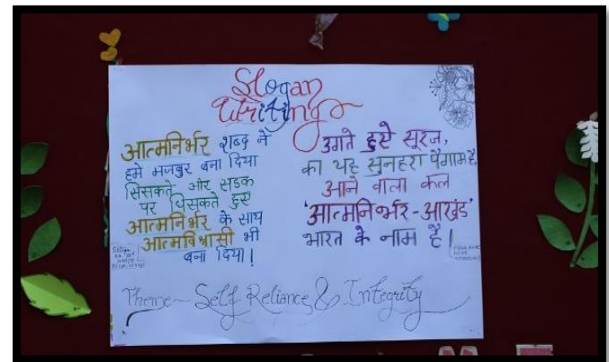 Slogan
Writing
आत्मनिर्भर शब्द ने
हमे मजबुर बना दिया
सिसकते और सड़क
पर घिसकते हुए
आत्मनिर्भर के साथ
आत्मविश्वासी भी
बना दिया!
उगते हुये सूरज,
का यह सुनहरा पैगाम है,
आने वाला कल
'आत्मनिर्भर-आखंड'
भारत के नाम है!
Theme - Self Reliance & Integrity